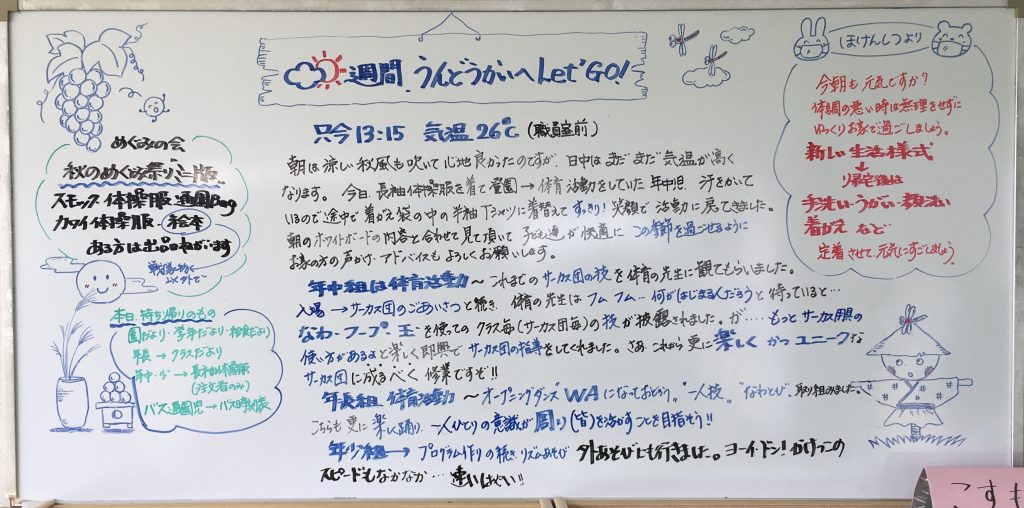 週間 うんどうかいへ Let'GO!
只今 13:15 気温 26℃ (職員室前)
朝は涼しい秋風も吹いて心地良かったのですが、日中はまだまだ気温が高く
なります。今日、長袖体操服を着て登園→体育活動をしていた年中児、汗をかいて
いるので途中で着がえ袋の中の半袖Tシャツに着替えてすっきり!笑顔で活動に戻てきました。
朝のホワイトボードの内容と合わせて見て頂いて子ども達が快適にこの季節を過ごせるように
お家の方の声かけ・アドバイスもよろしくお願いします。
年中組は体育活動〜これまでのサーカス団の技を体育の先生に観てもらいました。
入場→サーカス団のごあいさつと続き、体育の先生はフムフム…何がはじまるんだろうと待っていると…
なわ・フープ・玉を使ってのクラス毎(サーカス団毎)の技が披露されました。が‥‥もっとサーカス団員の
使い方があるよと楽しく即興でサーカス団の指導をしてくれました。さあこれから更に楽しくかつユニークな
サーカス団に成るべく修業ですぞ!!
年長組 体育活動〜オープニングダンス"WAになっておどろう。"一人技、"なわとび、取り組みました。
こちらも更に楽しく踊り、一人ひとりの意識が周り(皆)を活かすことを目指そう!!
年少組→プログラム作りの続き、リズムあそび 外あそびにも行きました。ヨーイ・ドン!かけっこの
スピードもなかなか…速いんばい!!
めぐみの会
秋のめぐみ祭"ミニ版"
スモック・体操服・通園Bag
カワイ体操服・絵本
ある方は出品ねがいます
本日、持ち帰りのもの
園だより・学年だより・給食だより
年長→クラスだより
年中・少→長袖体操服
(注文者のみ)
バス通園児→バス時刻表
ほけんしつより
今朝も元気ですか?
体調の悪い時は無理をせずに
ゆっくりお家で過ごしましょう。
新しい生活様式
↓帰宅後は
手洗い・うがい・顔洗い
着がえ など
定着させて、元気にすごしましょう。
こすも